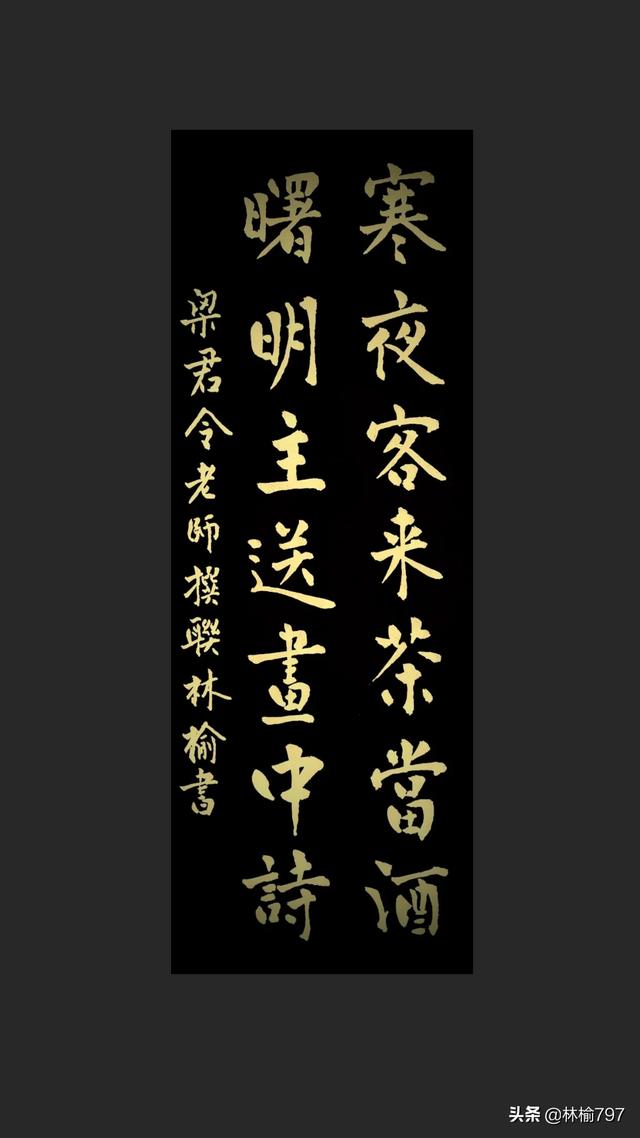 寒夜客来茶當酒
曙明主送畫中詩
梁君令老師撰聯林榆書
头条 @林榆797